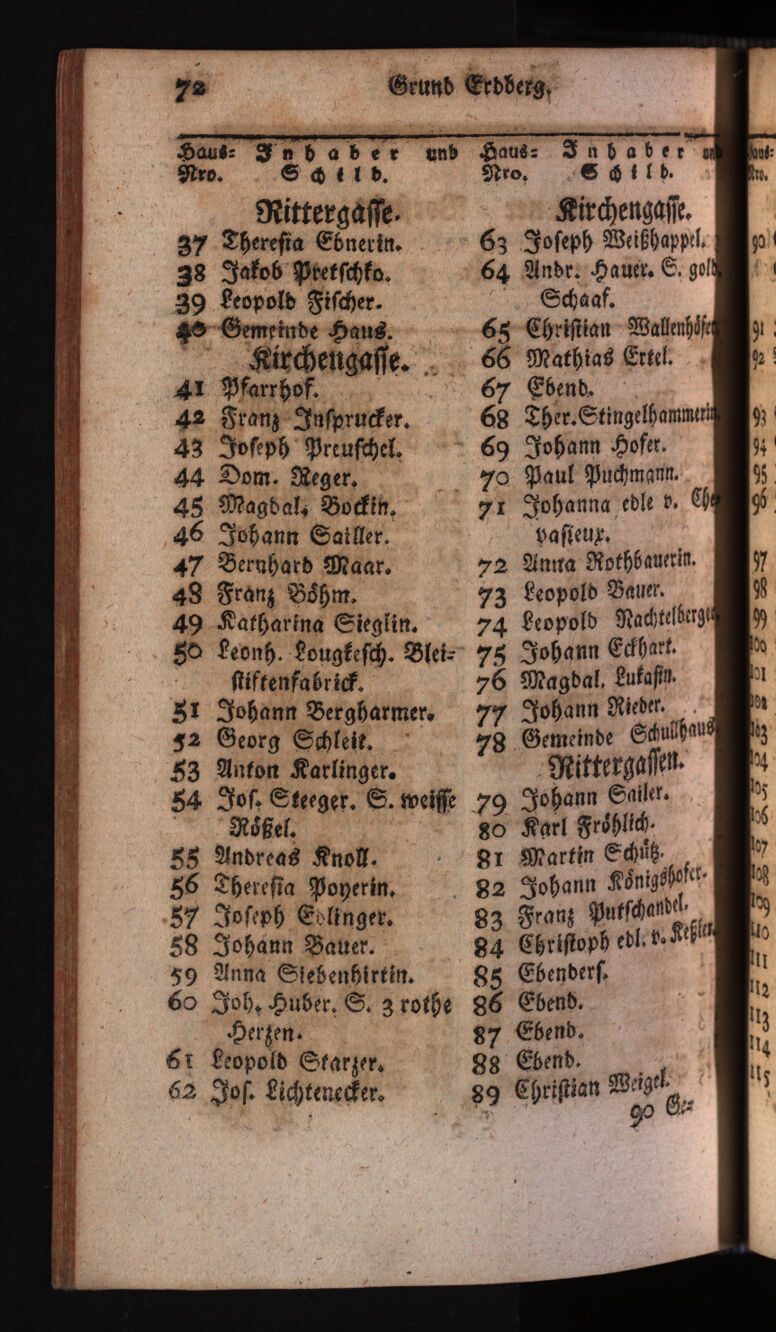 72 Grund Erdberg.
Haus= Inhaber und
Nro. Schild.
Rittergasse.
37 Theresia Ebnerin.
38 Jakob Pretschko.
39 Leopold Fischer.
40 Gemeinde Haus.
Kirchengasse.
41 Pfarrhof.
42 Franz Insprucker.
43 Joseph Preuschel.
44 Dom. Reger.
45 Magdal. Bockin.
46 Johann Sailler.
47 Bernhard Maar.
48 Franz Böhm.
49 Katharina Sieglin.
50 Leonh. Lougkesch. Blei=
stiftenfabrick.
51 Johann Bergharmer.
52 Georg Schleit.
53 Anton Karlinger.
54 Jos. Steeger. S. weisse
Rößel.
55 Andreas Knoll.
56 Theresia Poyerin.
57 Joseph Edlinger.
58 Johann Bauer.
59 Anna Siebenhirtin.
60 Joh. Huber. S. 3 rothe
Herzen.
61 Leopold Starzer.
62 Jos. Lichtenecker.
Haus= Inhaber
Nro. Schild.
Kirchengasse.
63 Joseph Weißhappel.
64 Andr. Hauer. S. gold
Schaaf.
65 Christian Wallenhöfe
66 Mathias Ertel.
67 Ebend.
68 Ther. Stingelhammerin
69 Johann Hofer.
70 Paul Puchmann.
71 Johanna edle v. Che
vasieux.
72 Anna Rothbauerin.
73 Leopold Bauer.
74 Leopold Nachtelberge
75 Johann Eckhart.
76 Magdal. Lukasin.
77 Johann Rieder.
78 Gemeinde Schullhaus
Rittergassen.
79 Johann Sailer.
80 Karl Fröhlich.
81 Martin Schütz.
82 Johann Königshofer.
83 Franz Putschandel.
84 Christoph edl. v. Keßler
85 Ebenders.
86 Ebend.
87 Ebend.
88 Ebend.
89 Christian Weigel.
90 Ge=
Nro.
90
91
92
93
94
95
96
97
98
99
100
101
102
103
104
105
106
107
108
109
110
111
112
113
114
115